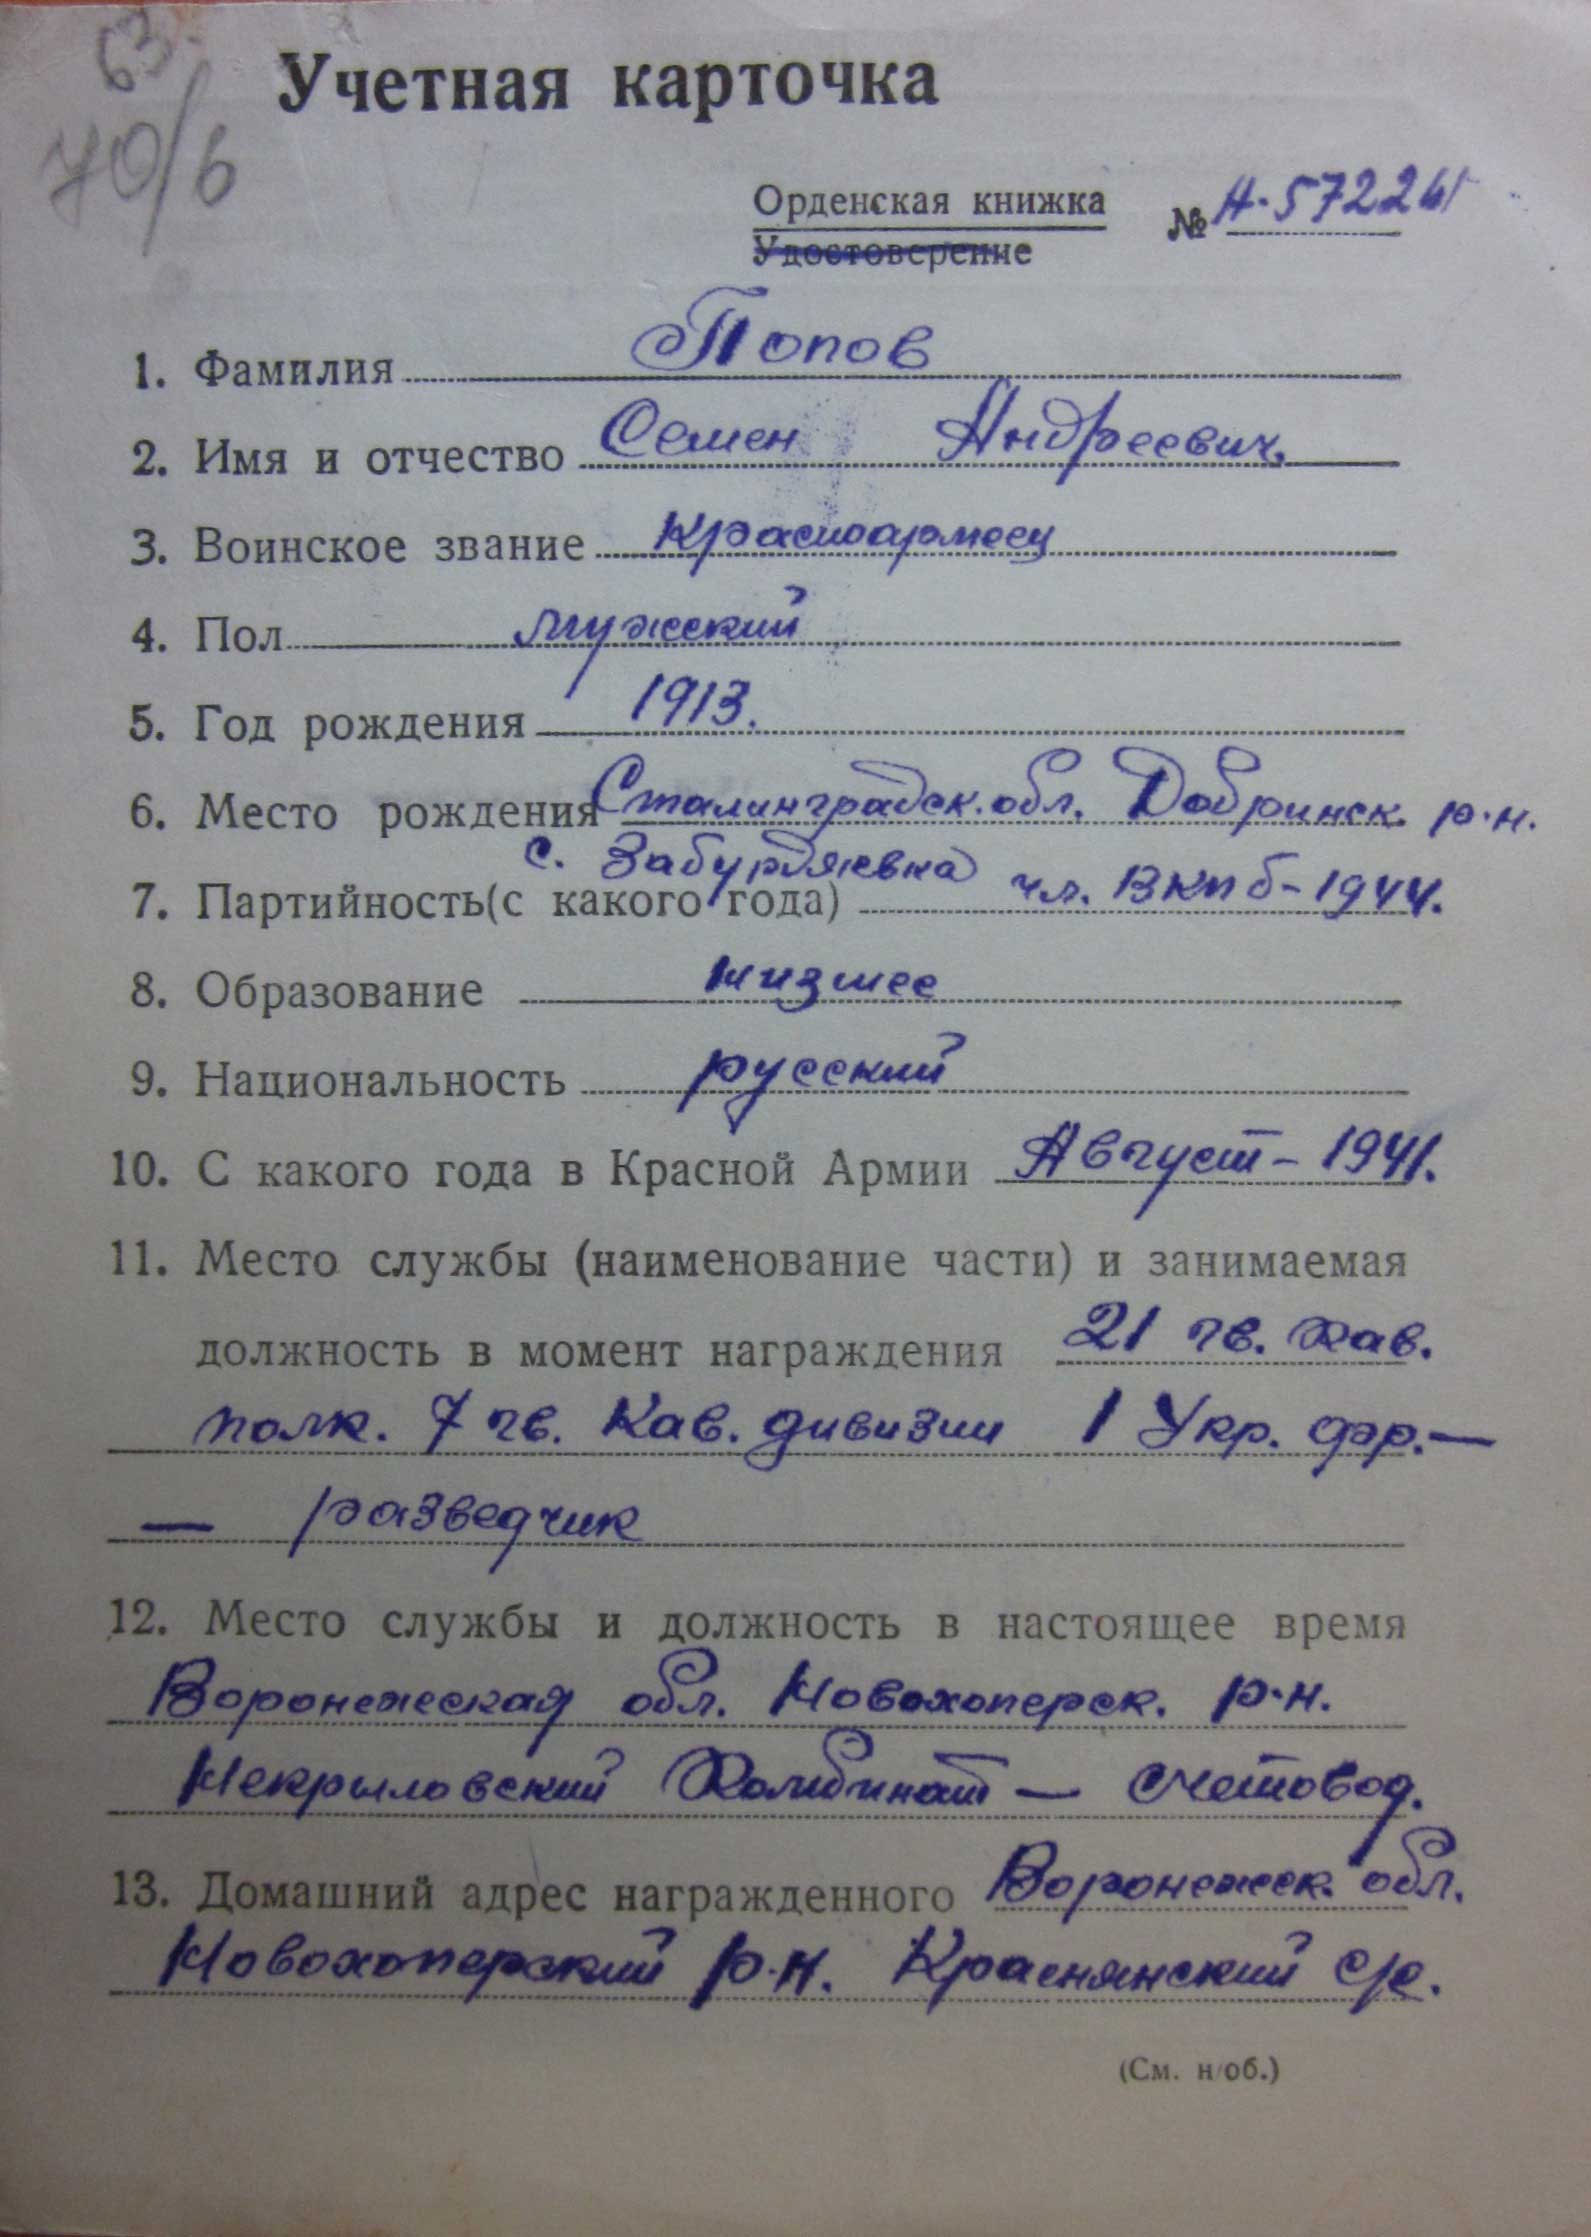 63.
70/6
Учетная карточка
Орденская книжка
Удостоверение
№ А-572241
1. Фамилия Попов
2. Имя и отчество Семен Андреевич.
3. Воинское звание красноармеец
4. Пол мужской
5. Год рождения 1913.
6. Место рождения Сталинградск. обл. Добринск. р-н.
с. Забурдяевка
7. Партийность (с какого года) чл. ВКПб-1944.
8. Образование низшее
9. Национальность русский
10. С какого года в Красной Армии Август-1941.
11. Место службы (наименование части) и занимаемая
должность в момент награждения 21 гв. Кав.
полк. 7 гв. Кав. дивизии 1 Укр. фр.—
— разведчик
12. Место службы и должность в настоящее время
Воронежская обл. Новохоперск. р-н.
Некрыловский Комбинат — счетовод.
13. Домашний адрес награжденного Воронежск. обл.
Новохоперский р-н. Краснянский с/с.
(См. н/об.)